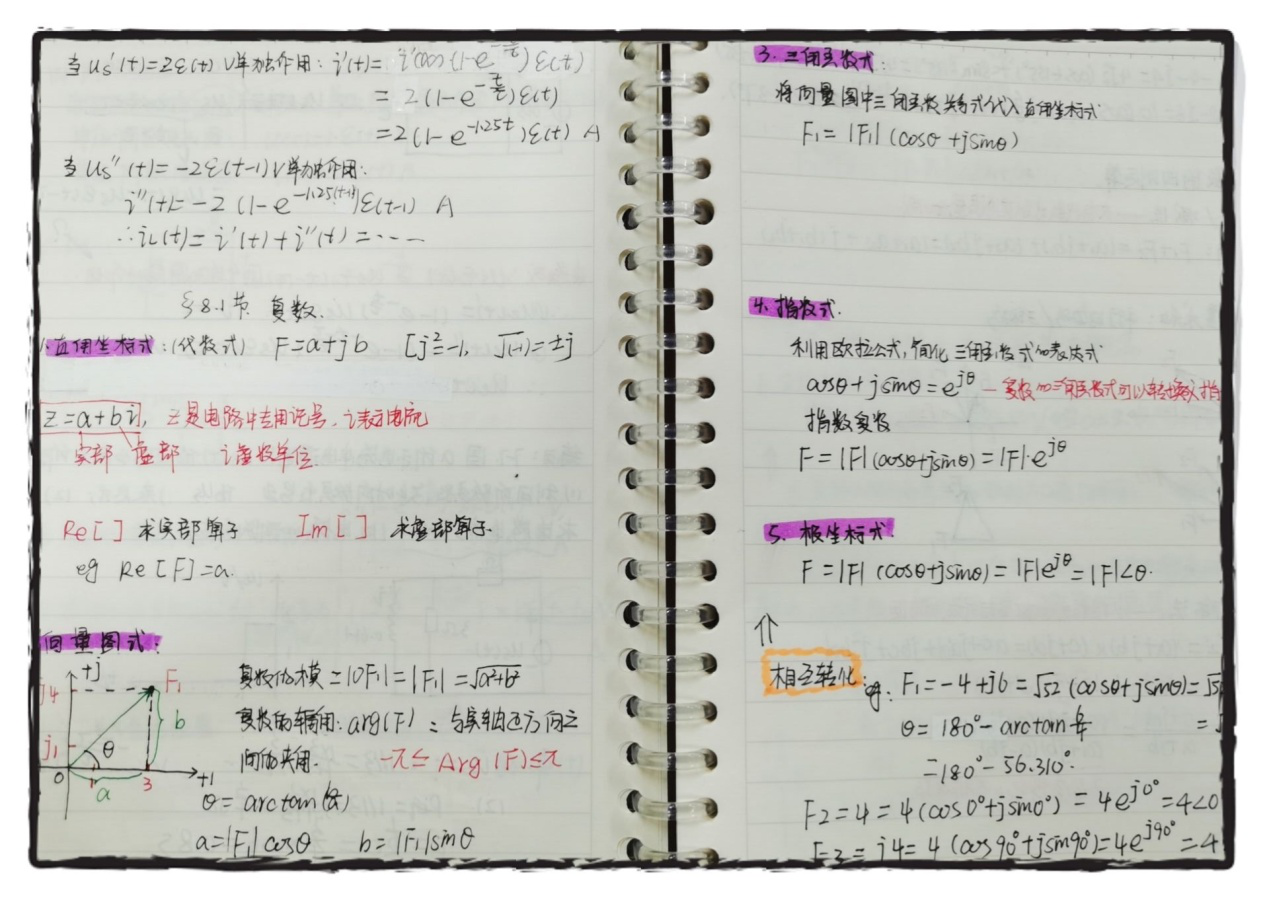 当 Us'(t)=2ε(t) V单独作用: i'(t)= i'(∞)(1-e^(-t/τ))ε(t)
= 2(1-e^(-t/τ))ε(t)
=2(1-e^(-1.25t))ε(t) A
当 Us''(t)=-2ε(t-1) V单独作用:
i''(t)=-2 (1-e^(-1.25(t-1)))ε(t-1) A
∴iL(t)= i'(t)+i''(t)=……
§8.1节 复数.
1.直角坐标式:(代数式) F=a+jb [j²=-1, √(-1)=±j
Z=a+bi, Z是电路中专用记号, i表示电流
实部 虚部 i虚数单位.
Re[ ] 求实部算子 Im[ ] 求虚部算子.
eg Re[F]=a.
向量图式:
+j
j4
F₁
b
j1
θ
0
1
3
+1
a
复数的模=|0F₁|=|F₁|=√(a²+b²)
复数的辐角: arg(F): 与实轴正方向之
间的夹角. -π≤Arg(F)≤π
θ=arctan(b/a)
a=|F₁|cosθ b=|F₁|sinθ
3. 三角函数式
将向量图中三角函数关系式代入直角坐标式
F₁=|F₁|(cosθ+jsinθ)
4. 指数式.
利用欧拉公式,简化三角函数式的表达式
cosθ+jsinθ=e^(jθ) - 复数的三角函数式可以转换为指
指数复数
F=|F|(cosθ+jsinθ)=|F|·e^(jθ)
5. 极坐标式.
F=|F|(cosθ+jsinθ)=|F|e^(jθ)=|F|∠θ.
⇑
相互转化:
eg. F₁=-4+j6=√52 (cosθ+jsinθ)=√5
θ=180°-arctan 6/4 =
=180°-56.310°.
F2=4=4(cos0°+jsin0°)=4e^(j0°)=4∠0
F3=j4=4(cos90°+jsin90°)=4e^(j90°)=4